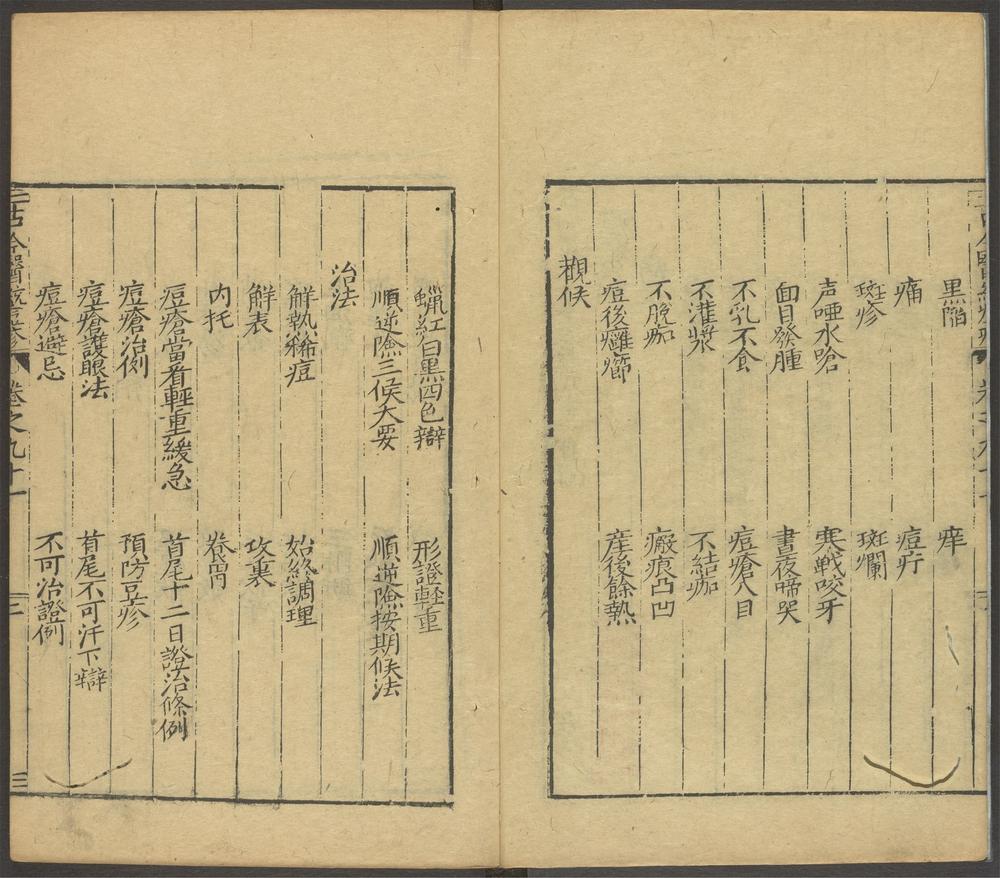 黒陥　痒
痛　痘疔
斑疹　斑爛
声啞水嗆　寒戦咬牙
面目發腫　晝夜啼哭
不乳不食　痘瘡入目
不灌漿　不結痂
不脫痂　瘢痕凸凹
痘後癰癤　産後餘熱
觀候
蠟紅白黒四色辯　形證輕重
順逆險三候大要　順逆險按期候法
治法
解熱稀痘　始終調理
解表　攻裏
内托
痘瘡當看輕重緩急　首尾十二日證治條例
痘瘡治例　預防豆疹
痘瘡護眼法　首尾不可汗下辯
痘瘡避忌　不可治證例
古今醫統　卷之九十一　三